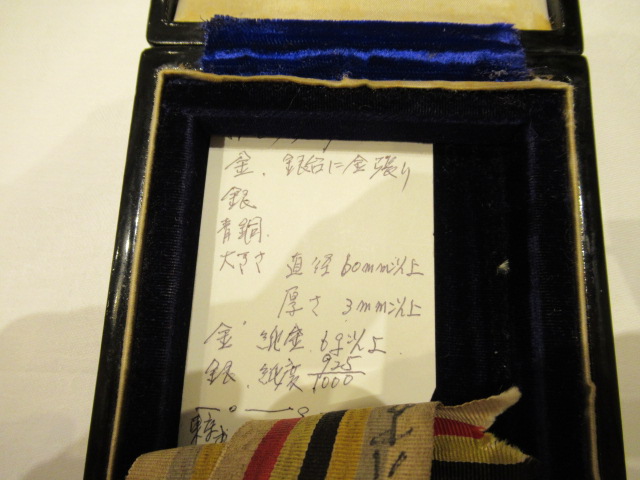 金、銀台に金張り
銀
青銅
大きさ 直径 60mm以上
厚さ 3mm以上
金 純金 6g以上
銀 純度 925/1000
東京